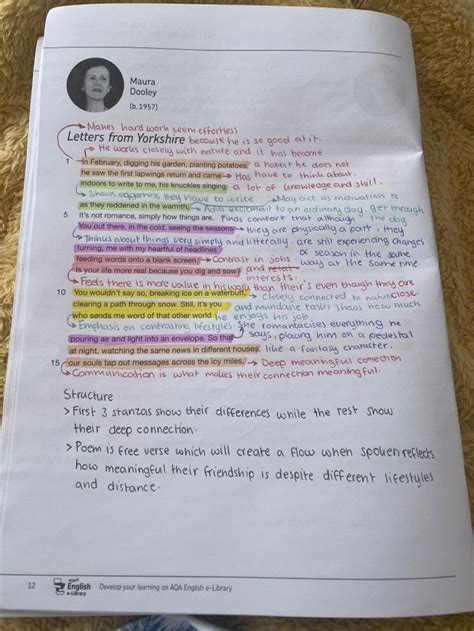 Maura
Dooley
(b.1957)
→ Makes hard work seem effortless
Letters from Yorkshire because he is so good at it.
→ He works closely with nature and it has become
1 In February, digging his garden, planting potatoes, a habbit he does not
he saw the first lapwings return and came → Has have to think about.
indoors to write to me, his knuckles singing a lot of knowledge and skill.
→ Shows eagerness they have to write → May act as motivation to
as they reddened in the warmth. → Adds excitement to an ordinary day get through
5 It's not romance, simply how things are. Finds comfort that although the day
You out there, in the cold, seeing the seasons → they are physically apart, they
→ Thinks about things very simply and litterally. are still experiencing changes
turning, me with my heartful of headlines of season in the same
feeding words onto a blank screen. → Contrast in jobs ways at the same time
Is your life more real because you dig and sow? and interests.
→ Feels there is more value in his work than their's even though they are
10 You wouldn't say so, breaking ice on a waterbutt, → closely connected to nature close.
clearing a path through snow. Still, it's you and mundane tasks shows how much
who sends me word of that other world he enjoys his job.
→ Emphasis on contrasting lifestyles. She romanticises everything he
pouring air and light into an envelope. So that says, placing him on a pedestal
at night, watching the same news in different houses, like a fantasy character.
15 our souls tap out messages across the icy miles. → Deep meaningful connection
→ Communication is what makes their connection meaningful.
Structure
> First 3 stanzas show their differences while the rest show
their deep connection.
> Poem is free verse which will create a flow when spoken reflects
how meaningful their friendship is despite different lifestyles
and distance.
12 AQA English e-Library Develop your learning on AQA English e-Library